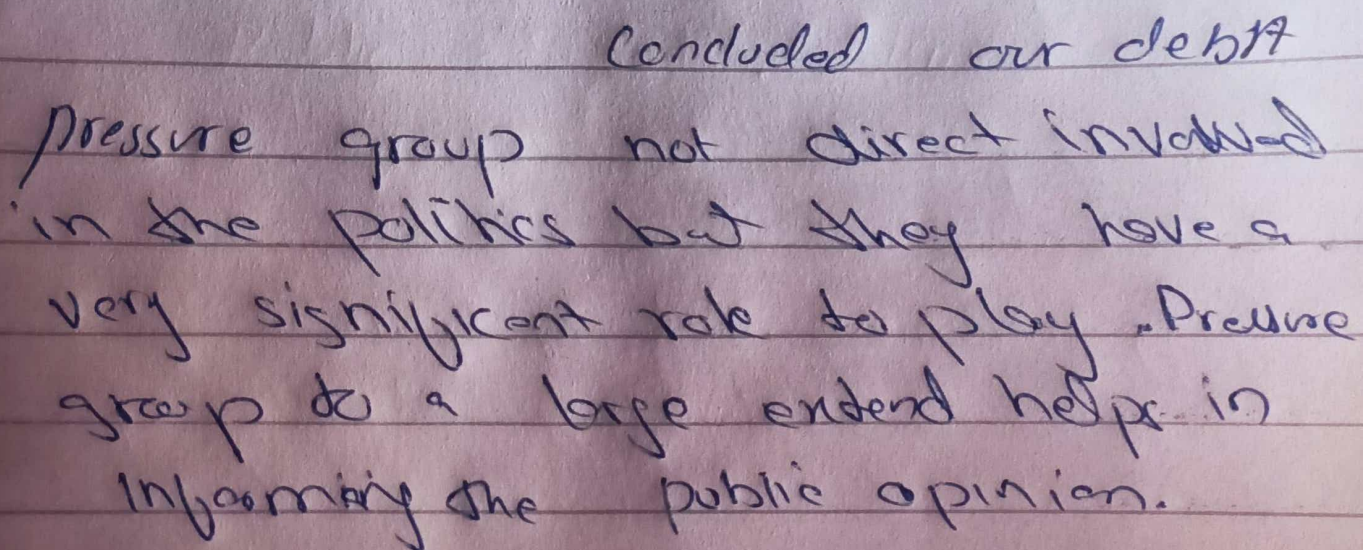 Concluded our debit
pressure group not direct involved
in the politics but they have a
very significant role to play. Pressure
group to a large extend helps in
Infoorming the public opinion.